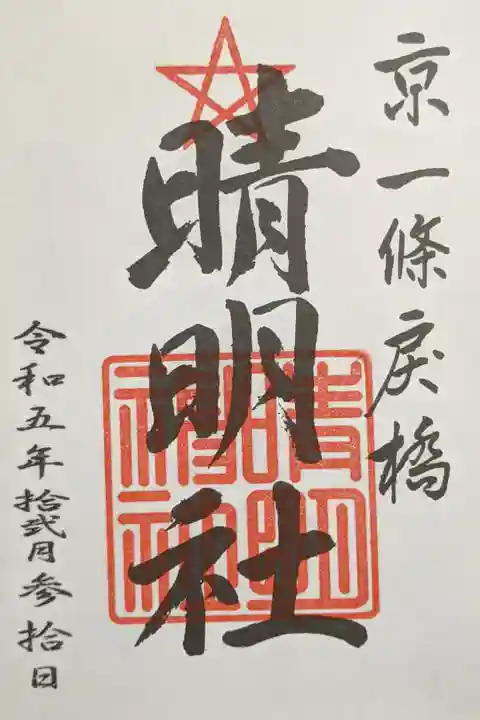 京一條戻橋
晴明社
晴明神社
令和五年拾弐月参拾日